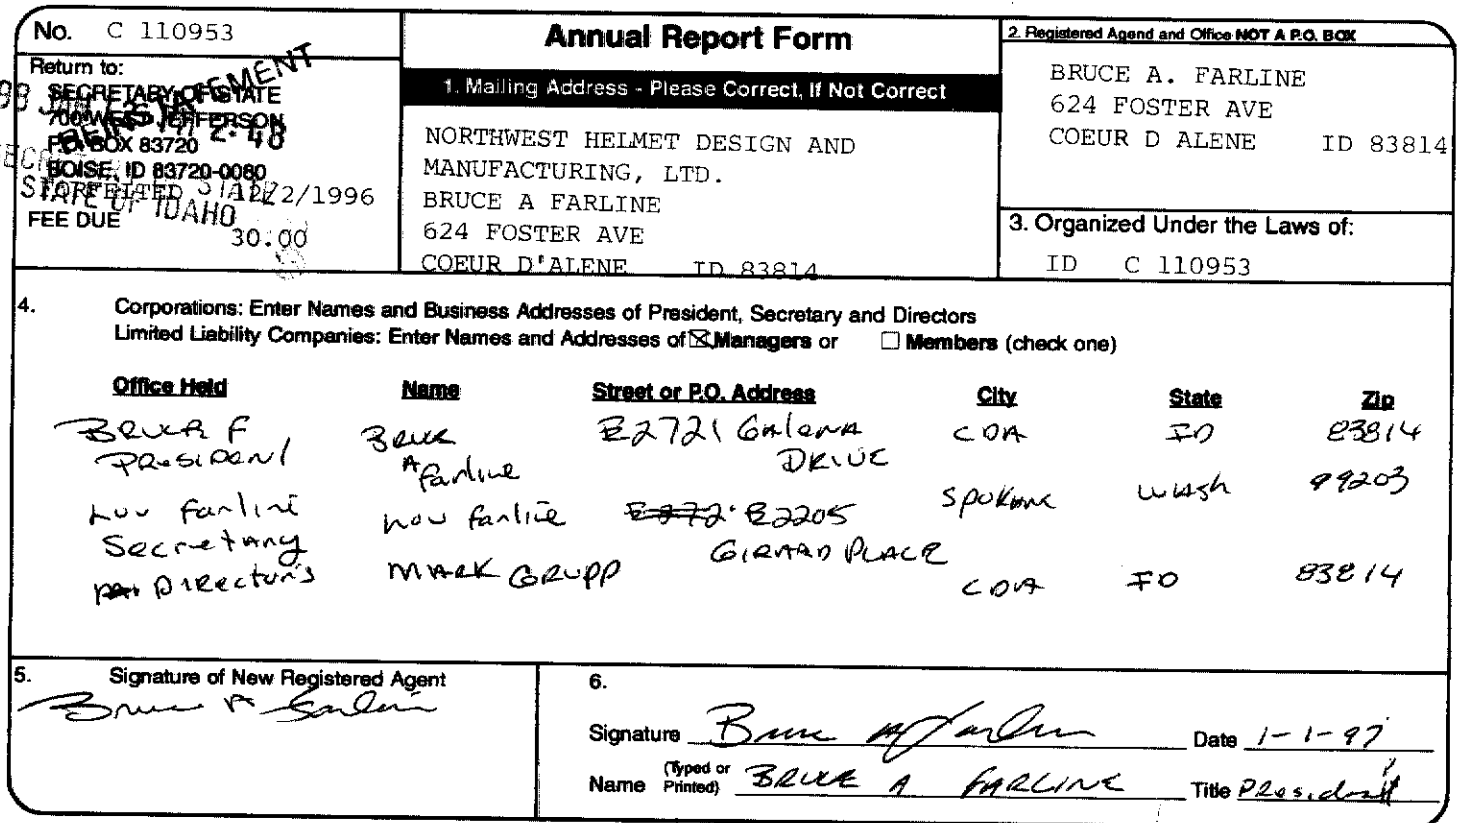 No. C 110953
Return to:
SECRETARY OF STATE
700 WEST JEFFERSON
P.O. BOX 83720
BOISE, ID 83720-0080
FORFEITED 12/2/1996
FEE DUE
30.00
REINSTATEMENT
2:48
STATE OF IDAHO
Annual Report Form
1. Mailing Address - Please Correct, If Not Correct
NORTHWEST HELMET DESIGN AND
MANUFACTURING, LTD.
BRUCE A FARLINE
624 FOSTER AVE
COEUR D'ALENE ID 83814
2. Registered Agend and Office NOT A P.O. BOX
BRUCE A. FARLINE
624 FOSTER AVE
COEUR D ALENE ID 83814
3. Organized Under the Laws of:
ID C 110953
4. Corporations: Enter Names and Business Addresses of President, Secretary and Directors
Limited Liability Companies: Enter Names and Addresses of ☒ Managers or ☐ Members (check one)
Office Held Name Street or P.O. Address City State Zip
Bruce F Bruce E2721 Galena CDA ID 83814
President A Farline Drive
Farline Farline E2205 Spokane Wash 99203
Secretary Girard Place
Directors Mark Grupp CDA ID 83814
5. Signature of New Registered Agent
Bruce A Farline
6.
Signature Bruce A Farline Date 1-1-97
Name (Typed or Printed) BRUCE A FARLINE Title President